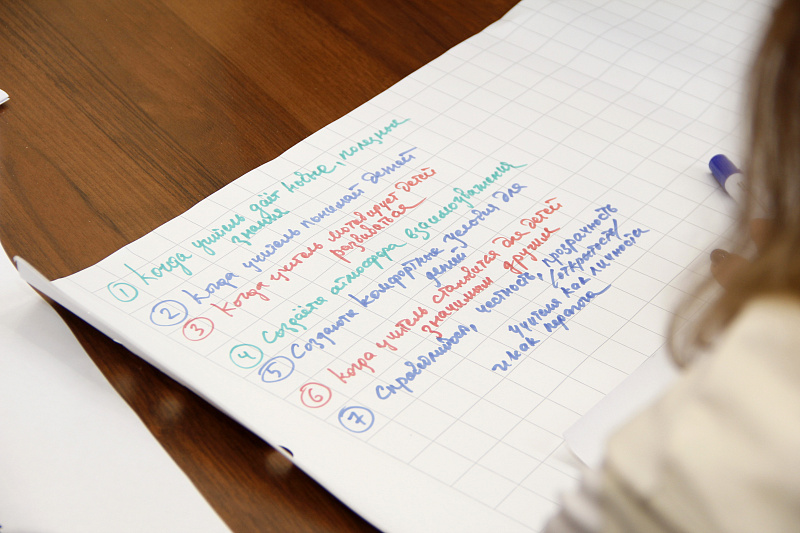 ① Когда учитель даёт новые, полезные
знания
② Когда учитель понимает детей
③ Когда учитель мотивирует детей
развиваться
④ Создаёт атмосферу взаимоуважения
⑤ Создаются комфортные условия для
детей
⑥ Когда учитель становится для детей
значимым другим
⑦ справедливость, честность, прозрачность
(открытость)
учителя как личности
и как педагога